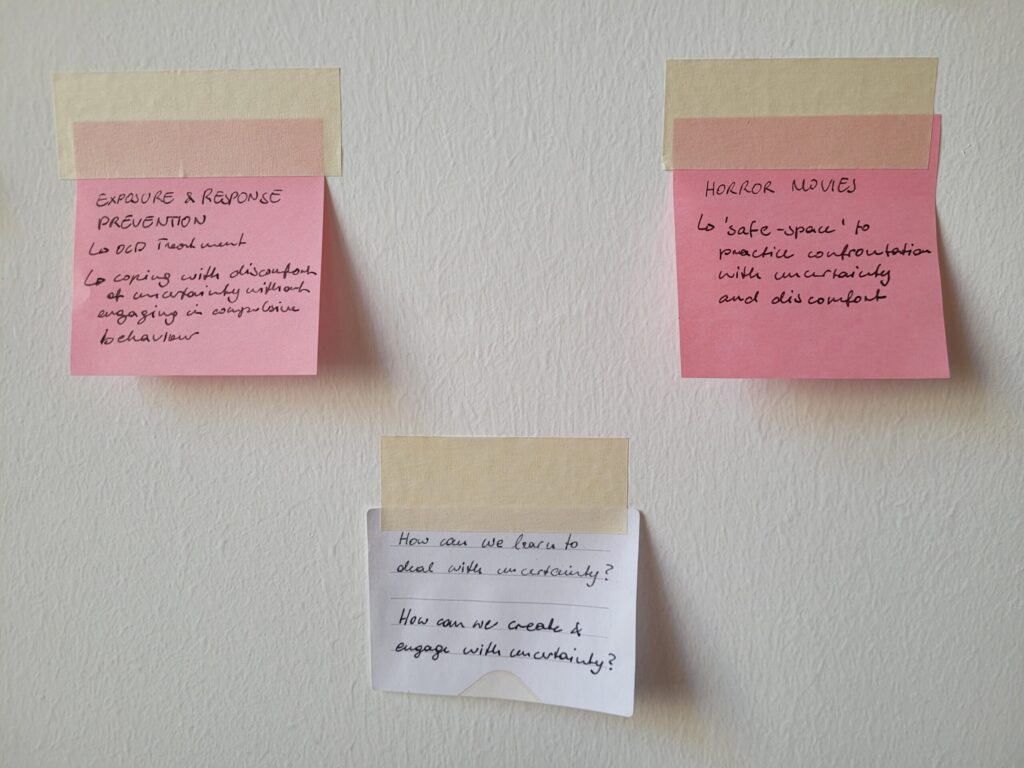 EXPOSURE & RESPONSE
PREVENTION
↳ OCD Treatment
↳ coping with discomfort
of uncertainty without
engaging in compulsive
behaviour
HORROR MOVIES
↳ 'safe-space' to
practice confrontation
with uncertainty
and discomfort
How can we learn to
deal with uncertainty?
How can we create &
engage with uncertainty?